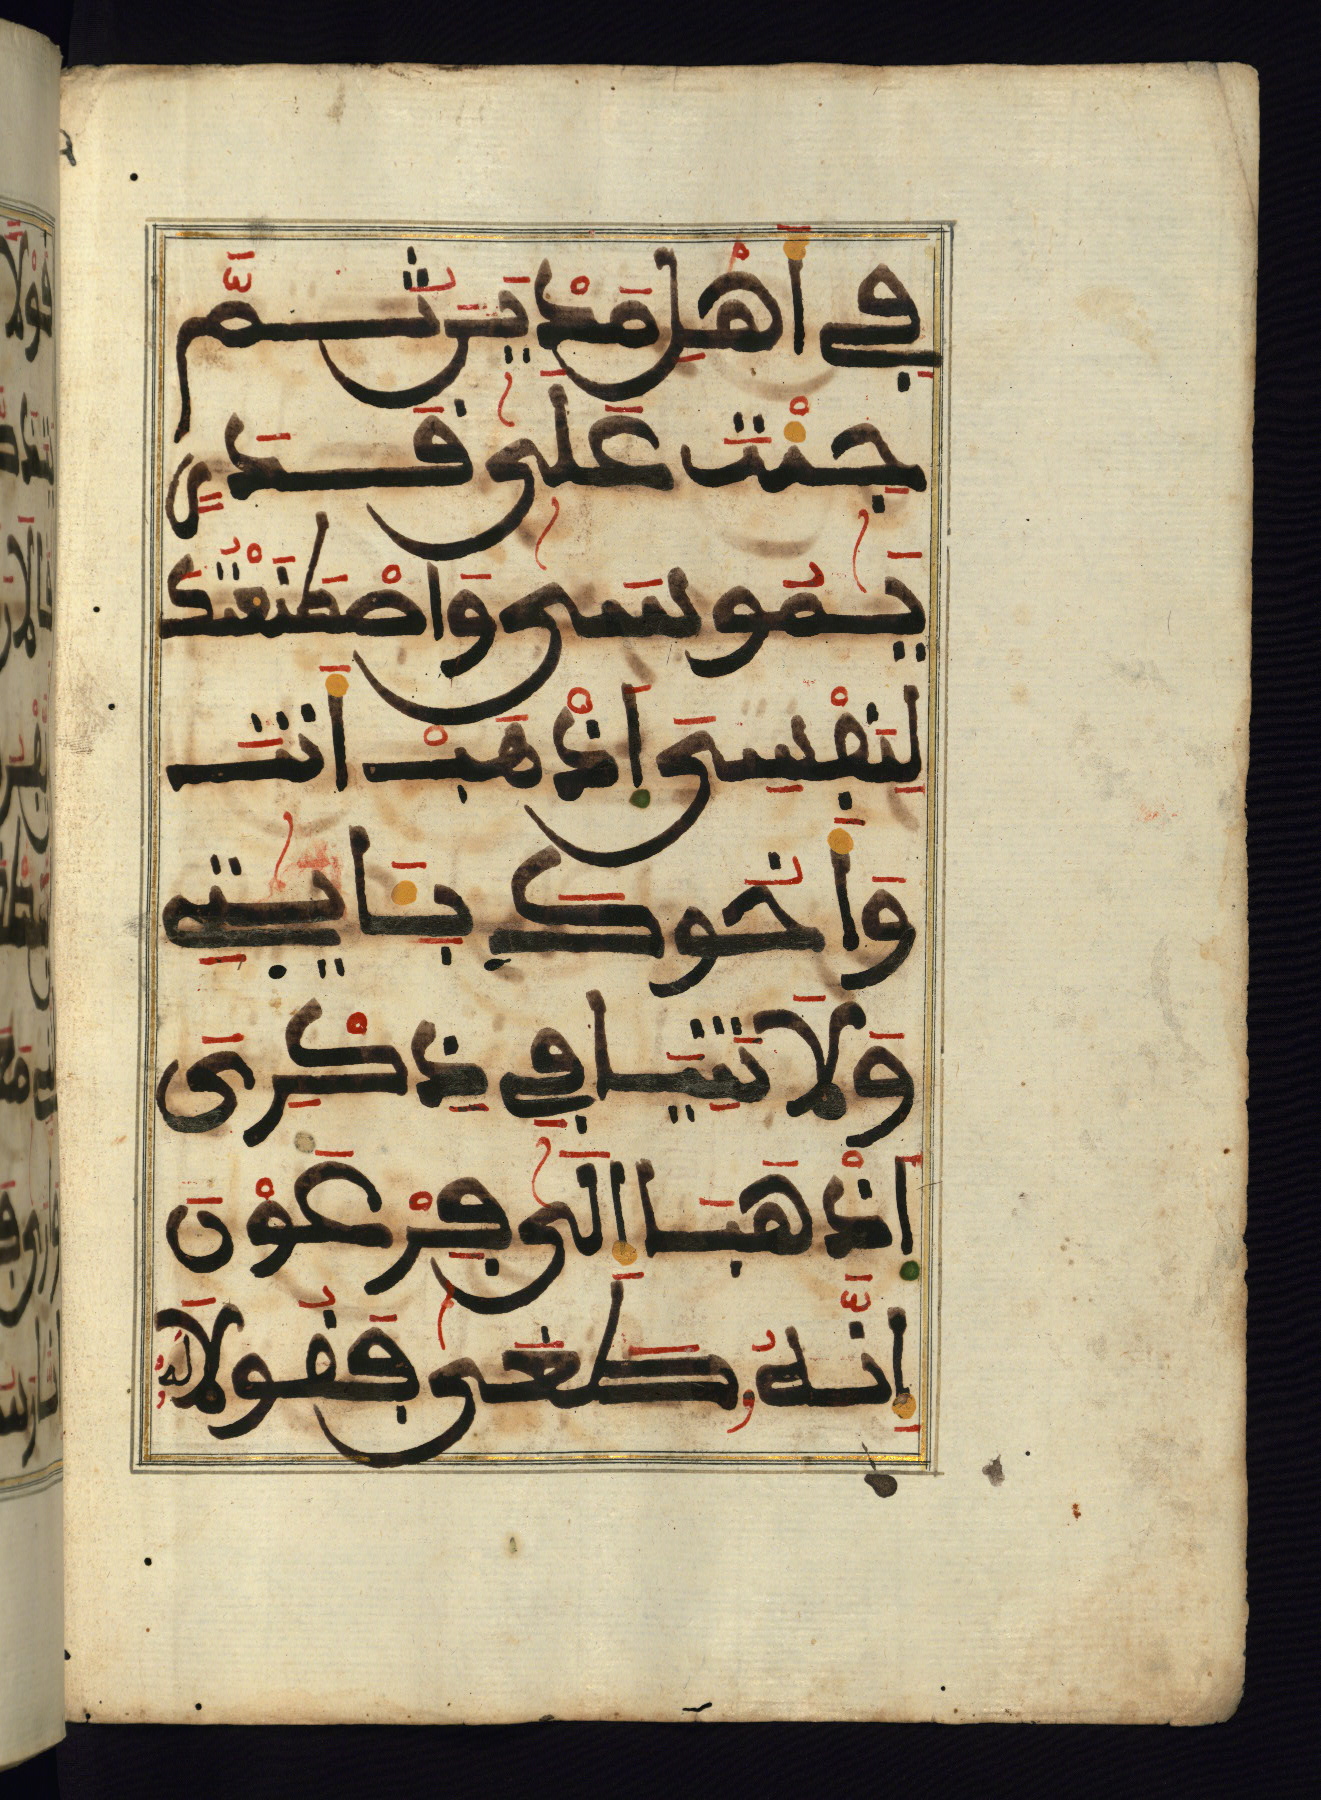 فِي أَهْلِ مَدْيَنَ ثُمَّ
جِئْتَ عَلَىٰ قَدَرٍ
يَٰمُوسَىٰ وَاصْطَنَعْتُكَ
لِنَفْسِيَ اِذْهَبْ أَنتَ
وَأَخُوكَ بِـَٔايَٰتِے
وَلَا تَنِيَا فِي ذِكْرِيَ
اِذْهَبَا إِلَىٰ فِرْعَوْنَ
إِنَّهُۥ طَغَىٰ فَقُولَا لَهُۥ